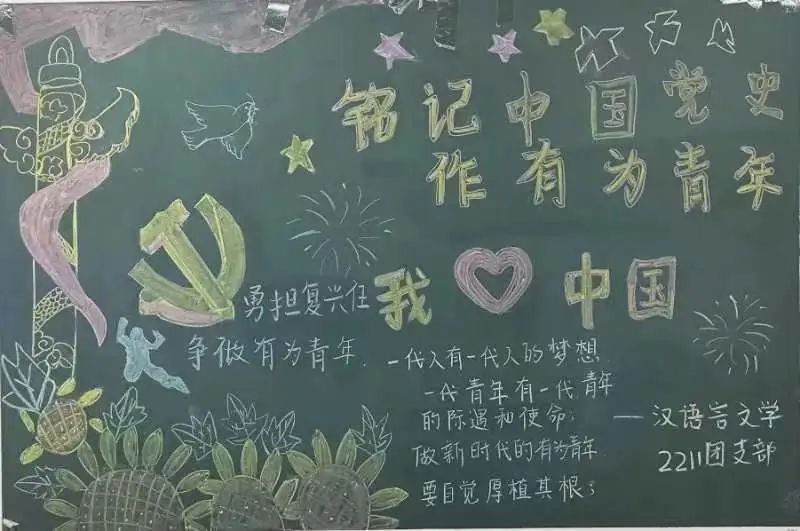 铭记中国党史
作有为青年
我 中国
勇担复兴任
争做有为青年、
一代人有一代人的梦想
一代青年有一代青年
的际遇和使命,
做新时代的有为青年
要自觉厚植其根;
—汉语言文学
2211团支部